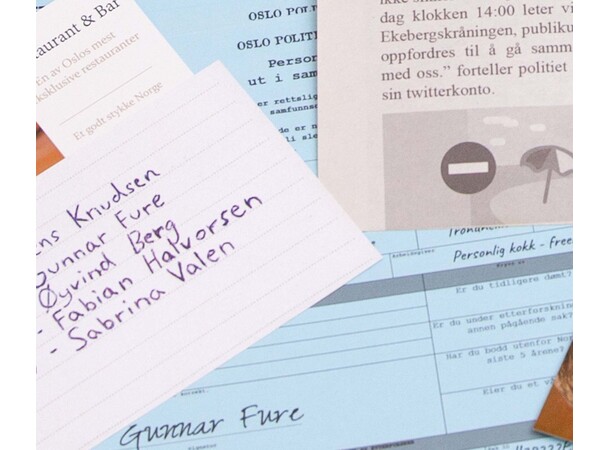 staurant & Bar
En av Oslos mest
eksklusive restauranter
Et godt stykke Norge
OSLO POLIT
Person
ut i sam
er rettslig
samfunnse
de er n
dag klokken 14:00 leter vi
Ekebergskråningen, publiku
oppfordres til å gå samm
med oss.” forteller politiet
sin twitterkonto.
ens Knudsen
Gunnar Fure
Øyvind Berg
- Fabian Halvorsen
- Sabrina Valen
Trondheim
Arbeidsgiver
Personlig kokk - free
Er du tidligere dømt?
Er du under etterforskning
annen pågående sak?
Har du bodd utenfor Nor
siste 5 årene?
Eier du et v
Gunnar Fure
Signatur